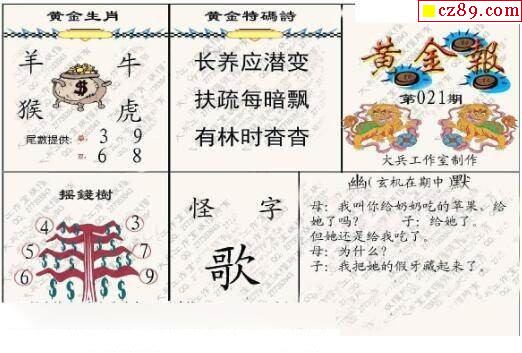 cz89.com
黄金生肖
羊
牛
猴
虎
$
尾數提供:單: 3 9
雙: 6 8
黄金特碼詩
长养应潜变
扶疏每暗飘
有林时杳杳
黄金報
第021期
大兵工作室制作
摇錢樹
4
7
3
6
1
9
怪 字
歌
幽(玄机在期中 默
母：我叫你给奶奶吃的苹果、给
她了吗？ 子：给她了。
但她还是给我吃了。
母：为什么？
子：我把她的假牙藏起来了。